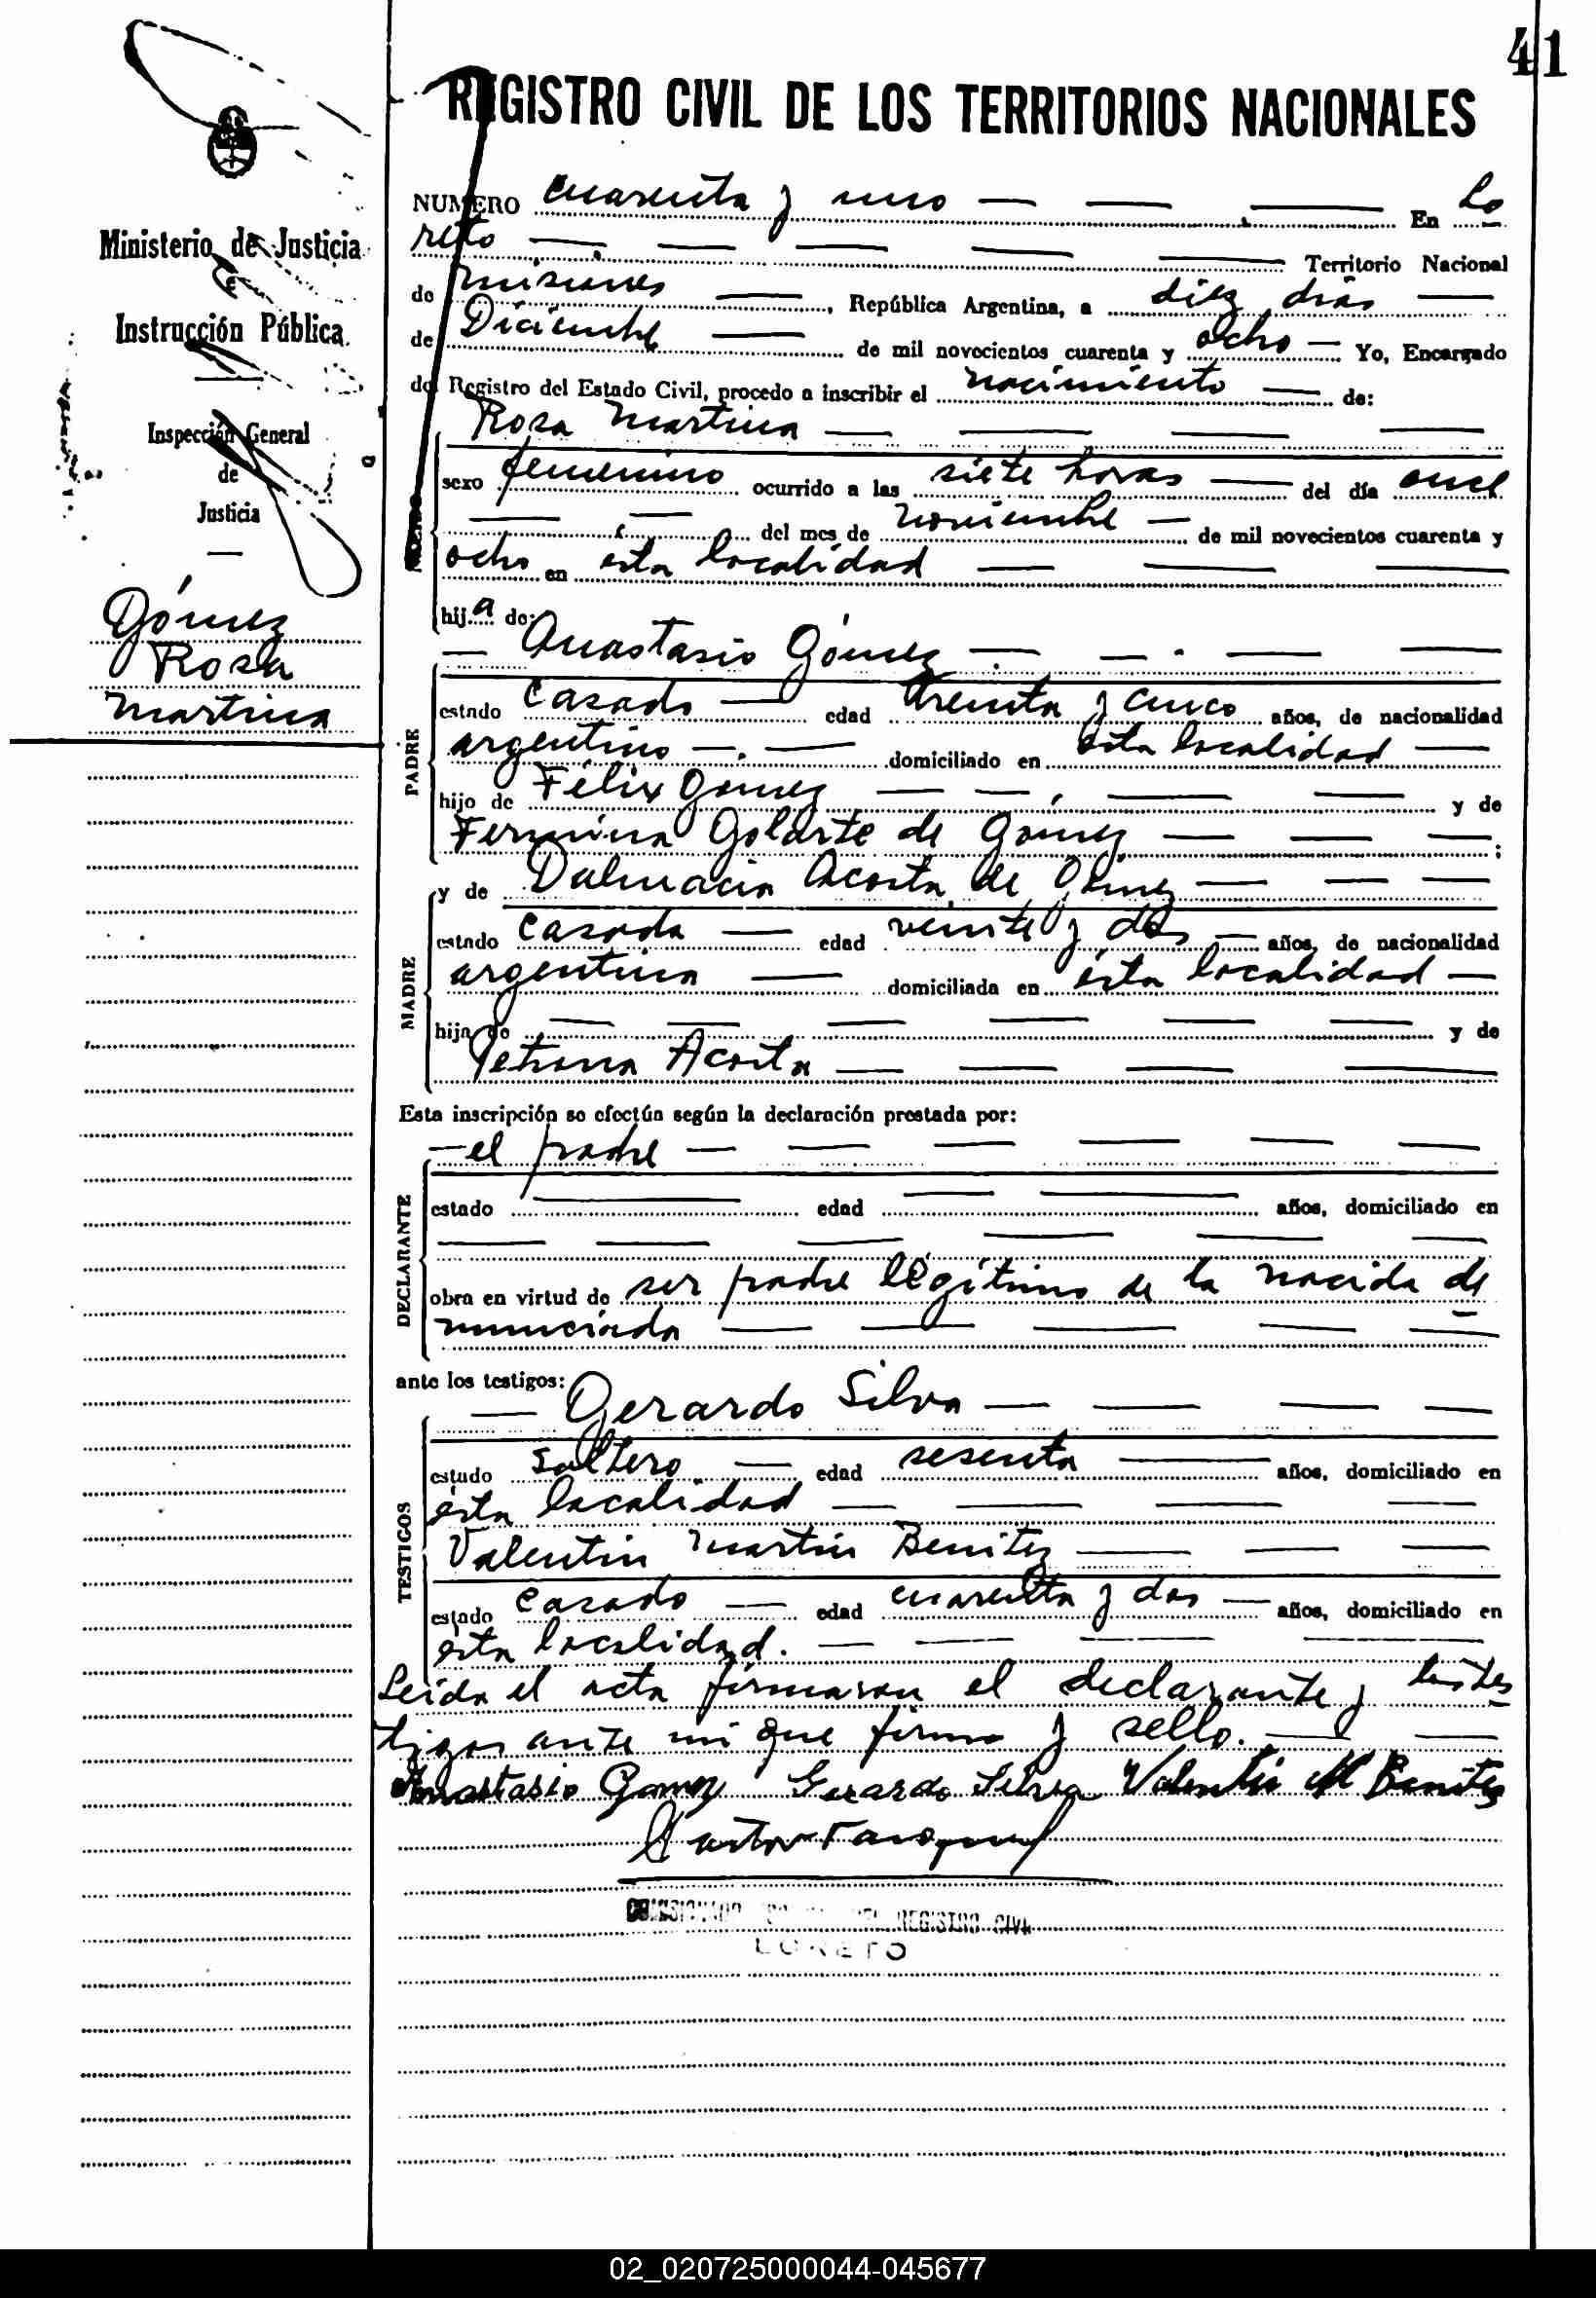 41
REGISTRO CIVIL DE LOS TERRITORIOS NACIONALES
Ministerio de Justicia
e
Instrucción Pública.
Inspección General
de
Justicia
Gómez
Rosa
Martina
NUMERO cuarenta y uno En Lo
reto Territorio Nacional
de misiones, República Argentina, a diez días
de Diciembre de mil novecientos cuarenta y ocho Yo, Encargado
del Registro del Estado Civil, procedo a inscribir el nacimiento de:
Rosa Martina
sexo femenino ocurrido a las siete horas del día once
del mes de noviembre de mil novecientos cuarenta y
ocho en esta localidad
hija de:
Anastasio Gómez
PADRE
estado casado edad treinta y cinco años, de nacionalidad
argentino domiciliado en ésta localidad
hijo de Félix Gómez y de
Fermina Golarte de Gómez;
y de Dalmacia Acosta de Gómez
MADRE
estado casada edad veinte y dos años, de nacionalidad
argentina domiciliada en ésta localidad
hija de y de
Petrona Acosta
Esta inscripción se efectúa según la declaración prestada por:
el padre
DECLARANTE
estado edad años, domiciliado en
obra en virtud de ser padre legítimo de la nacida de
nunciada
ante los testigos:
Gerardo Silva
TESTIGOS
estado soltero edad sesenta años, domiciliado en
ésta localidad
Valentin Martin Benitez
estado casado edad cuarenta y dos años, domiciliado en
ésta localidad.
Leída el acta firmaron el declarante y los tes
tigos ante mi que firmo y sello.
Anastasio Gomez Gerardo Silva Valentin M Benitez
REGISTRO CIVIL
LORETO
02_020725000044-045677